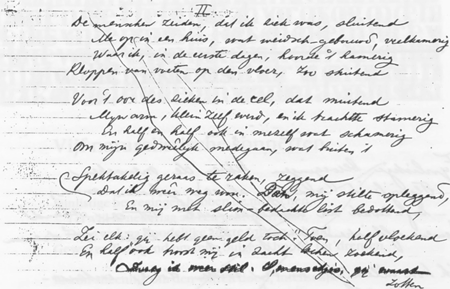 II
De menschen zeiden, dat ik ziek was, sluitend
Me op in een huis, wat weidsch gebouwd, veelkamerig
Waar ik, in de eerste dagen, hoorde 't hamerig
Kloppen van voeten op den vloer, zoo stuitend
Voor 't oor des zieken in de cel, dat muitend
Mijn arm, klein zelf werd, en ik trachtte stamerig
En half en half ook in mezelf wat schamerig
Om mijn gedwee medegaan, wat buiten 't
Spektakelig geraas te raken, zeggend
Dat ik weêr weg wou. Dan, mij stilte opleggend,
En mij met slim-bedachte list bedottend,
Zei elk: gij hebt geen geld toch! Toen, half vloekend
En half ook troost mij in zacht zoekend,
Zweeg ik weer stil: O, menschjes, gij waart
zotten